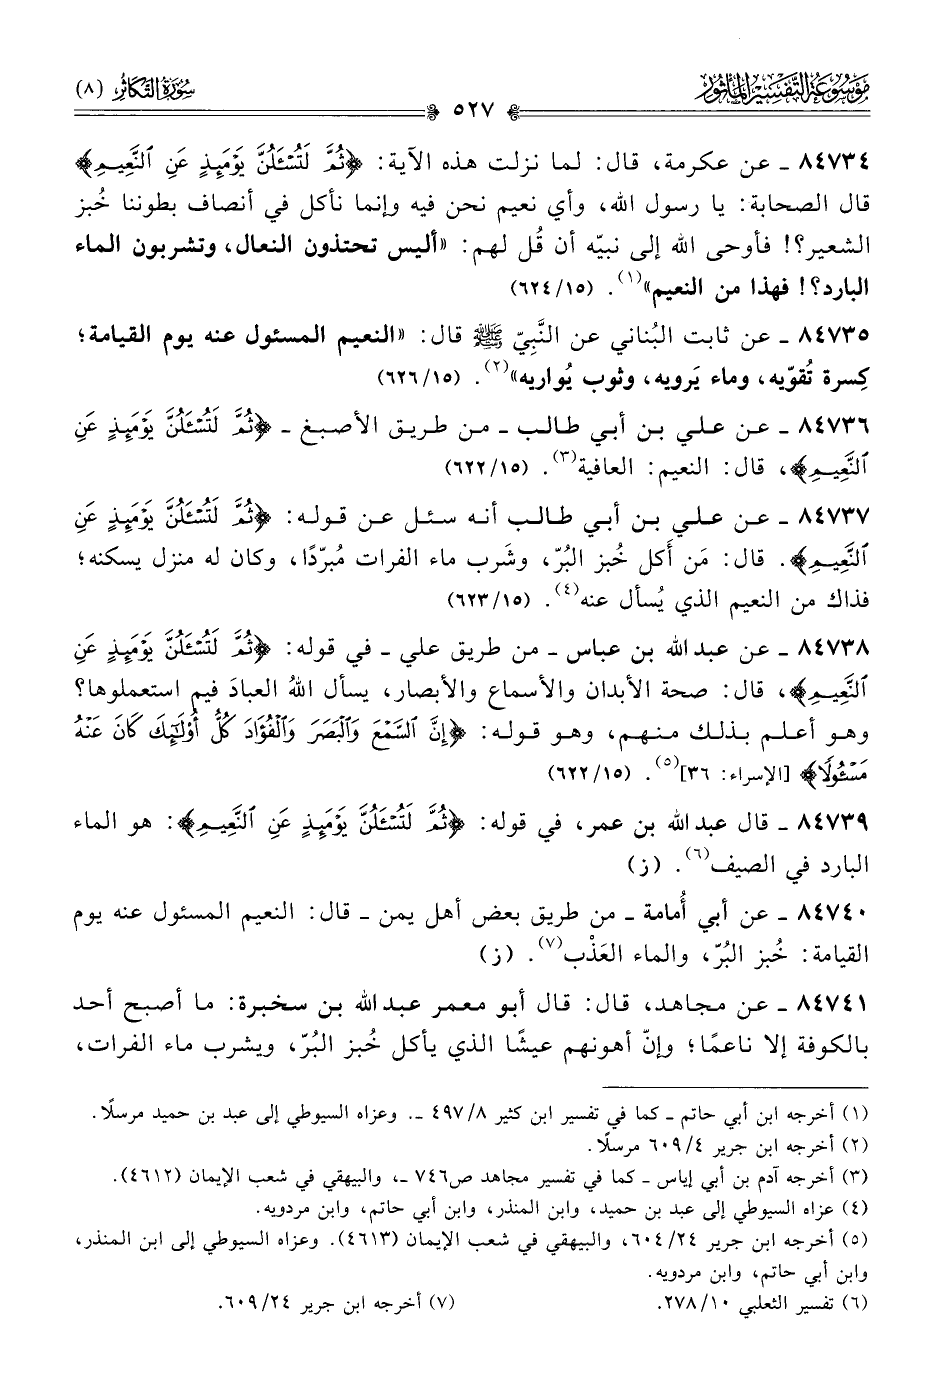 موسوعة التفسير المأثور
سورة التكاثر (٨)
٥٢٧
٨٤٧٣٤ ـ عن عكرمة، قال: لما نزلت هذه الآية: ﴿ثُمَّ لَتُسْـَٔلُنَّ يَوْمَئِذٍ عَنِ ٱلنَّعِيمِ﴾
قال الصحابة: يا رسول الله، وأي نعيم نحن فيه وإنما نأكل في أنصاف بطوننا خُبز
الشعير؟! فأوحى الله إلى نبيّه أن قُل لهم: «أليس تحتذون النعال، وتشربون الماء
البارد؟! فهذا من النعيم»(١). (٦٢٤/١٥)
٨٤٧٣٥ ـ عن ثابت البُناني عن النَّبِيّ ﷺ قال: «النعيم المسئول عنه يوم القيامة؛
كِسرة تُقوّيه، وماء يَرويه، وثوب يُواريه»(٢). (٦٢٦/١٥)
٨٤٧٣٦ ـ عن علي بن أبي طالب ـ من طريق الأصبغ ـ ﴿ثُمَّ لَتُسْـَٔلُنَّ يَوْمَئِذٍ عَنِ
ٱلنَّعِيمِ﴾، قال: النعيم: العافية(٣). (٦٢٢/١٥)
٨٤٧٣٧ ـ عن علي بن أبي طالب أنه سئل عن قوله: ﴿ثُمَّ لَتُسْـَٔلُنَّ يَوْمَئِذٍ عَنِ
ٱلنَّعِيمِ﴾. قال: مَن أَكل خُبز البُرّ، وشَرب ماء الفرات مُبرّدًا، وكان له منزل يسكنه؛
فذاك من النعيم الذي يُسأل عنه(٤). (٦٢٣/١٥)
٨٤٧٣٨ ـ عن عبد الله بن عباس ـ من طريق علي ـ في قوله: ﴿ثُمَّ لَتُسْـَٔلُنَّ يَوْمَئِذٍ عَنِ
ٱلنَّعِيمِ﴾، قال: صحة الأبدان والأسماع والأبصار، يسأل اللهُ العبادَ فيم استعملوها؟
وهو أعلم بذلك منهم، وهو قوله: ﴿إِنَّ ٱلسَّمْعَ وَٱلْبَصَرَ وَٱلْفُؤَادَ كُلُّ أُو۟لَٰٓئِكَ كَانَ عَنْهُ
مَسْـُٔولًا﴾ [الإسراء: ٣٦](٥). (٦٢٢/١٥)
٨٤٧٣٩ ـ قال عبد الله بن عمر، في قوله: ﴿ثُمَّ لَتُسْـَٔلُنَّ يَوْمَئِذٍ عَنِ ٱلنَّعِيمِ﴾: هو الماء
البارد في الصيف(٦). (ز)
٨٤٧٤٠ ـ عن أبي أُمامة ـ من طريق بعض أهل يمن ـ قال: النعيم المسئول عنه يوم
القيامة: خُبز البُرّ، والماء العَذْب(٧). (ز)
٨٤٧٤١ ـ عن مجاهد، قال: قال أبو معمر عبد الله بن سخبرة: ما أصبح أحد
بالكوفة إلا ناعمًا؛ وإنّ أهونهم عيشًا الذي يأكل خُبز البُرّ، ويشرب ماء الفرات،
(١) أخرجه ابن أبي حاتم ـ كما في تفسير ابن كثير ٤٩٧/٨ ـ. وعزاه السيوطي إلى عبد بن حميد مرسلًا.
(٢) أخرجه ابن جرير ٦٠٩/٤ مرسلًا.
(٣) أخرجه آدم بن أبي إياس ـ كما في تفسير مجاهد ص٧٤٦ ـ، والبيهقي في شعب الإيمان (٤٦١٢).
(٤) عزاه السيوطي إلى عبد بن حميد، وابن المنذر، وابن أبي حاتم، وابن مردويه.
(٥) أخرجه ابن جرير ٦٠٤/٢٤، والبيهقي في شعب الإيمان (٤٦١٣). وعزاه السيوطي إلى ابن المنذر،
وابن أبي حاتم، وابن مردويه.
(٦) تفسير الثعلبي ٢٧٨/١٠.
(٧) أخرجه ابن جرير ٦٠٩/٢٤.